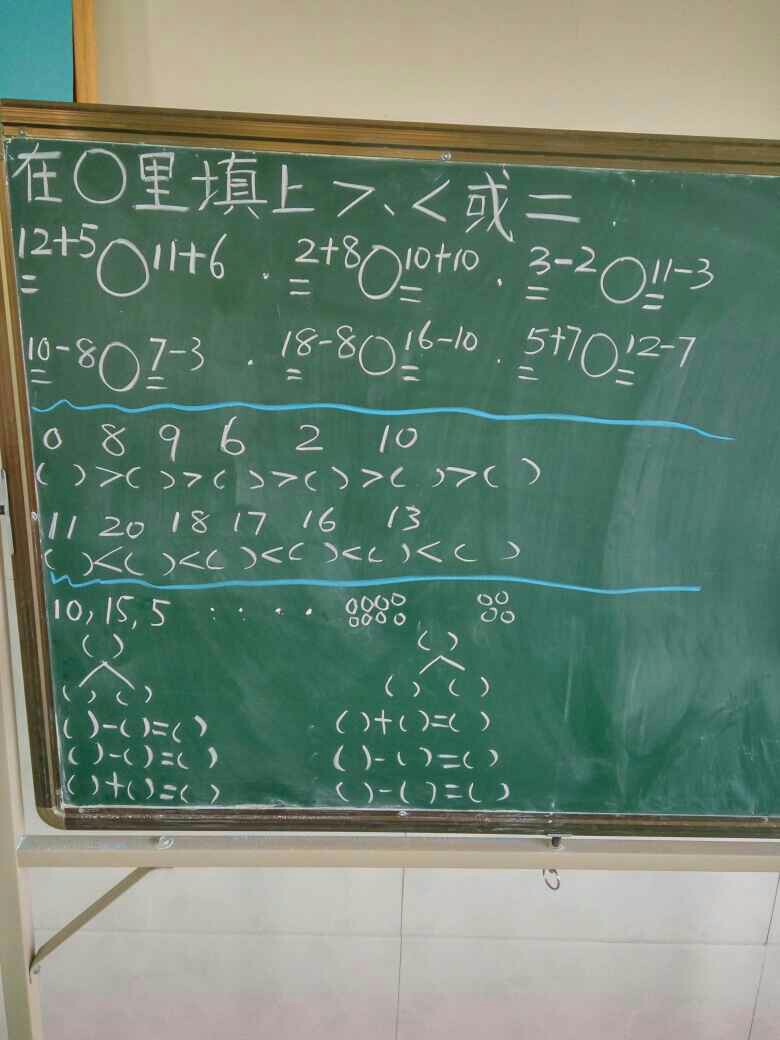 在○里填上>、<或=.
12+5○11+6 . 2+8○10+10 . 3-2○11-3
10-8○7-3 . 18-8○16-10 . 5+7○12-7
0 8 9 6 2 10
( )>( )>( )>( )>( )>( )
11 20 18 17 16 13
( )<( )<( )<( )<( )<( )
10, 15, 5
( ) ( )
( ) ( ) ( ) ( )
( )-( )=( ) ( )+( )=( )
( )-( )=( ) ( )-( )=( )
( )+( )=( ) ( )-( )=( )